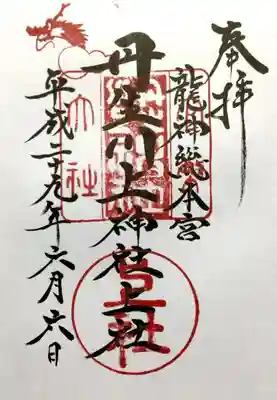 奉拝
龍神総本宮
丹生川上神社上社
平成二十九年六月六日
上社